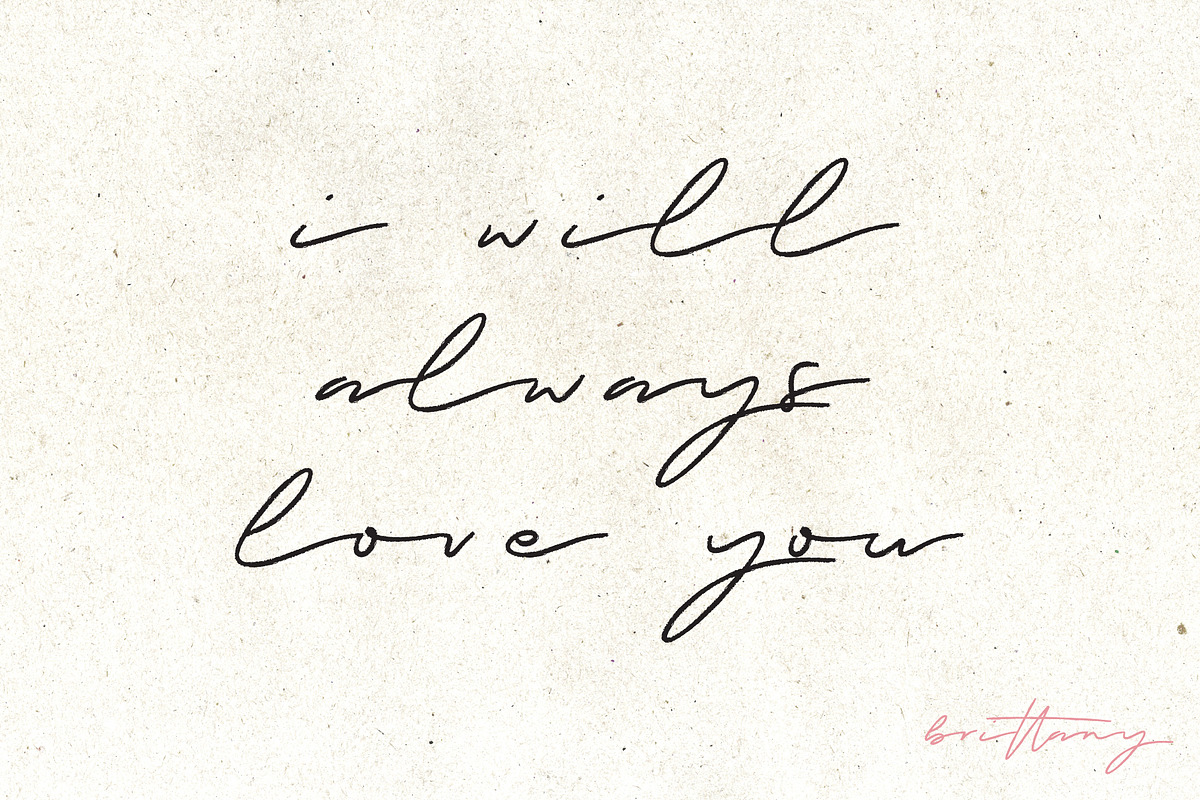 i will
always
love you
brittany